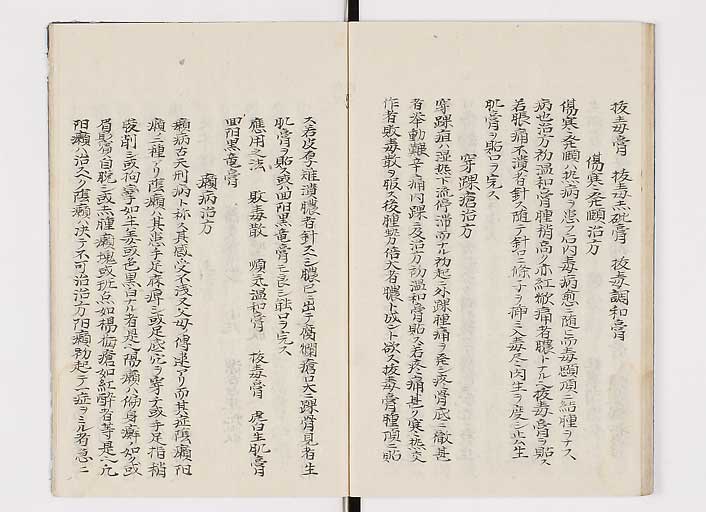 抜毒膏 抜毒玉砒膏 抜毒調和膏
傷寒発頤治方
傷寒発頤ハ熱病ヲ患フ后内毒病愈ニ随ヒ而毒顋頏ニ結腫ヲナス
病也治方初温和膏腫稍高ク赤紅焮痛者膿トナルニ抜毒膏ヲ貼ス
若脹痛不潰者針ス随テ針口ニ條子ヲ挿ミ入毒尽肉生ヲ度ニ止ム生
肌膏ヲ貼口ヲ完ス
穿踝瘡治方
穿踝疽ハ湿熱下流停滞而ナル初起ニ外踝腫痛ヲ発シ疼骨底ニ徹甚
者挙動難辛ニ痛内踝ニ及治方初温和膏貼ス若疼痛甚ク寒熱交
作者敗毒散ヲ服ス後腫勢倍大者膿ト成ント欲ス抜毒膏腫頂ニ貼
ス若皮厚ク難潰膿者針ス已ニ膿已ニ出テ腐爛瘡口大ニ踝骨見者生
肌膏ヲ貼ス或ハ四阳黒竜膏モ良シ壮口ヲ完ス
應用之法 敗毒散 順気温和膏 抜毒膏 虎白生肌膏
四阳黒竜膏
癩病治方
癩病古天刑病ト称ス其感受不浅又父母傳患アリ而其症陰癩阳
癩二種アリ陰癩ハ其患手足麻痺シ或足底穴ヲ穿ナ或手足指稍
嵗削シ或拘攣如生姜或色黒白ナル者是也陽癩ハ偏身癬ノ如ク或
眉髭席自脱シ或赤腫癩塊或斑点如楊梅瘡如紅酔者等是也凡
阳癩ハ治スヘク陰癩ハ決テ不可治治方阳癩初起テ一症ヲミル者急ニ